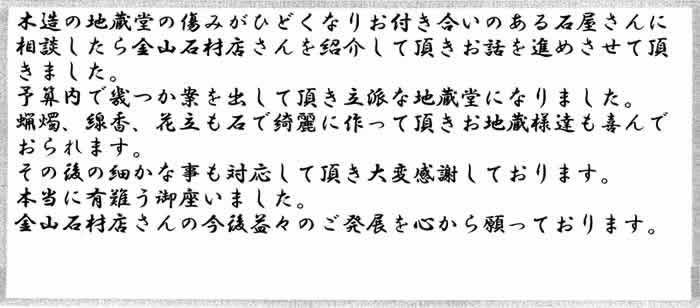 木造の地蔵堂の傷みがひどくなりお付き合いのある石屋さんに
相談したら金山石材店さんを紹介して頂きお話を進めさせて頂
きました。
予算内で幾つか案を出して頂き立派な地蔵堂になりました。
蝋燭、線香、花立も石で綺麗に作って頂きお地蔵様達も喜んで
おられます。
その後の細かな事も対応して頂き大変感謝しております。
本当に有難う御座いました。
金山石材店さんの今後益々のご発展を心から願っております。